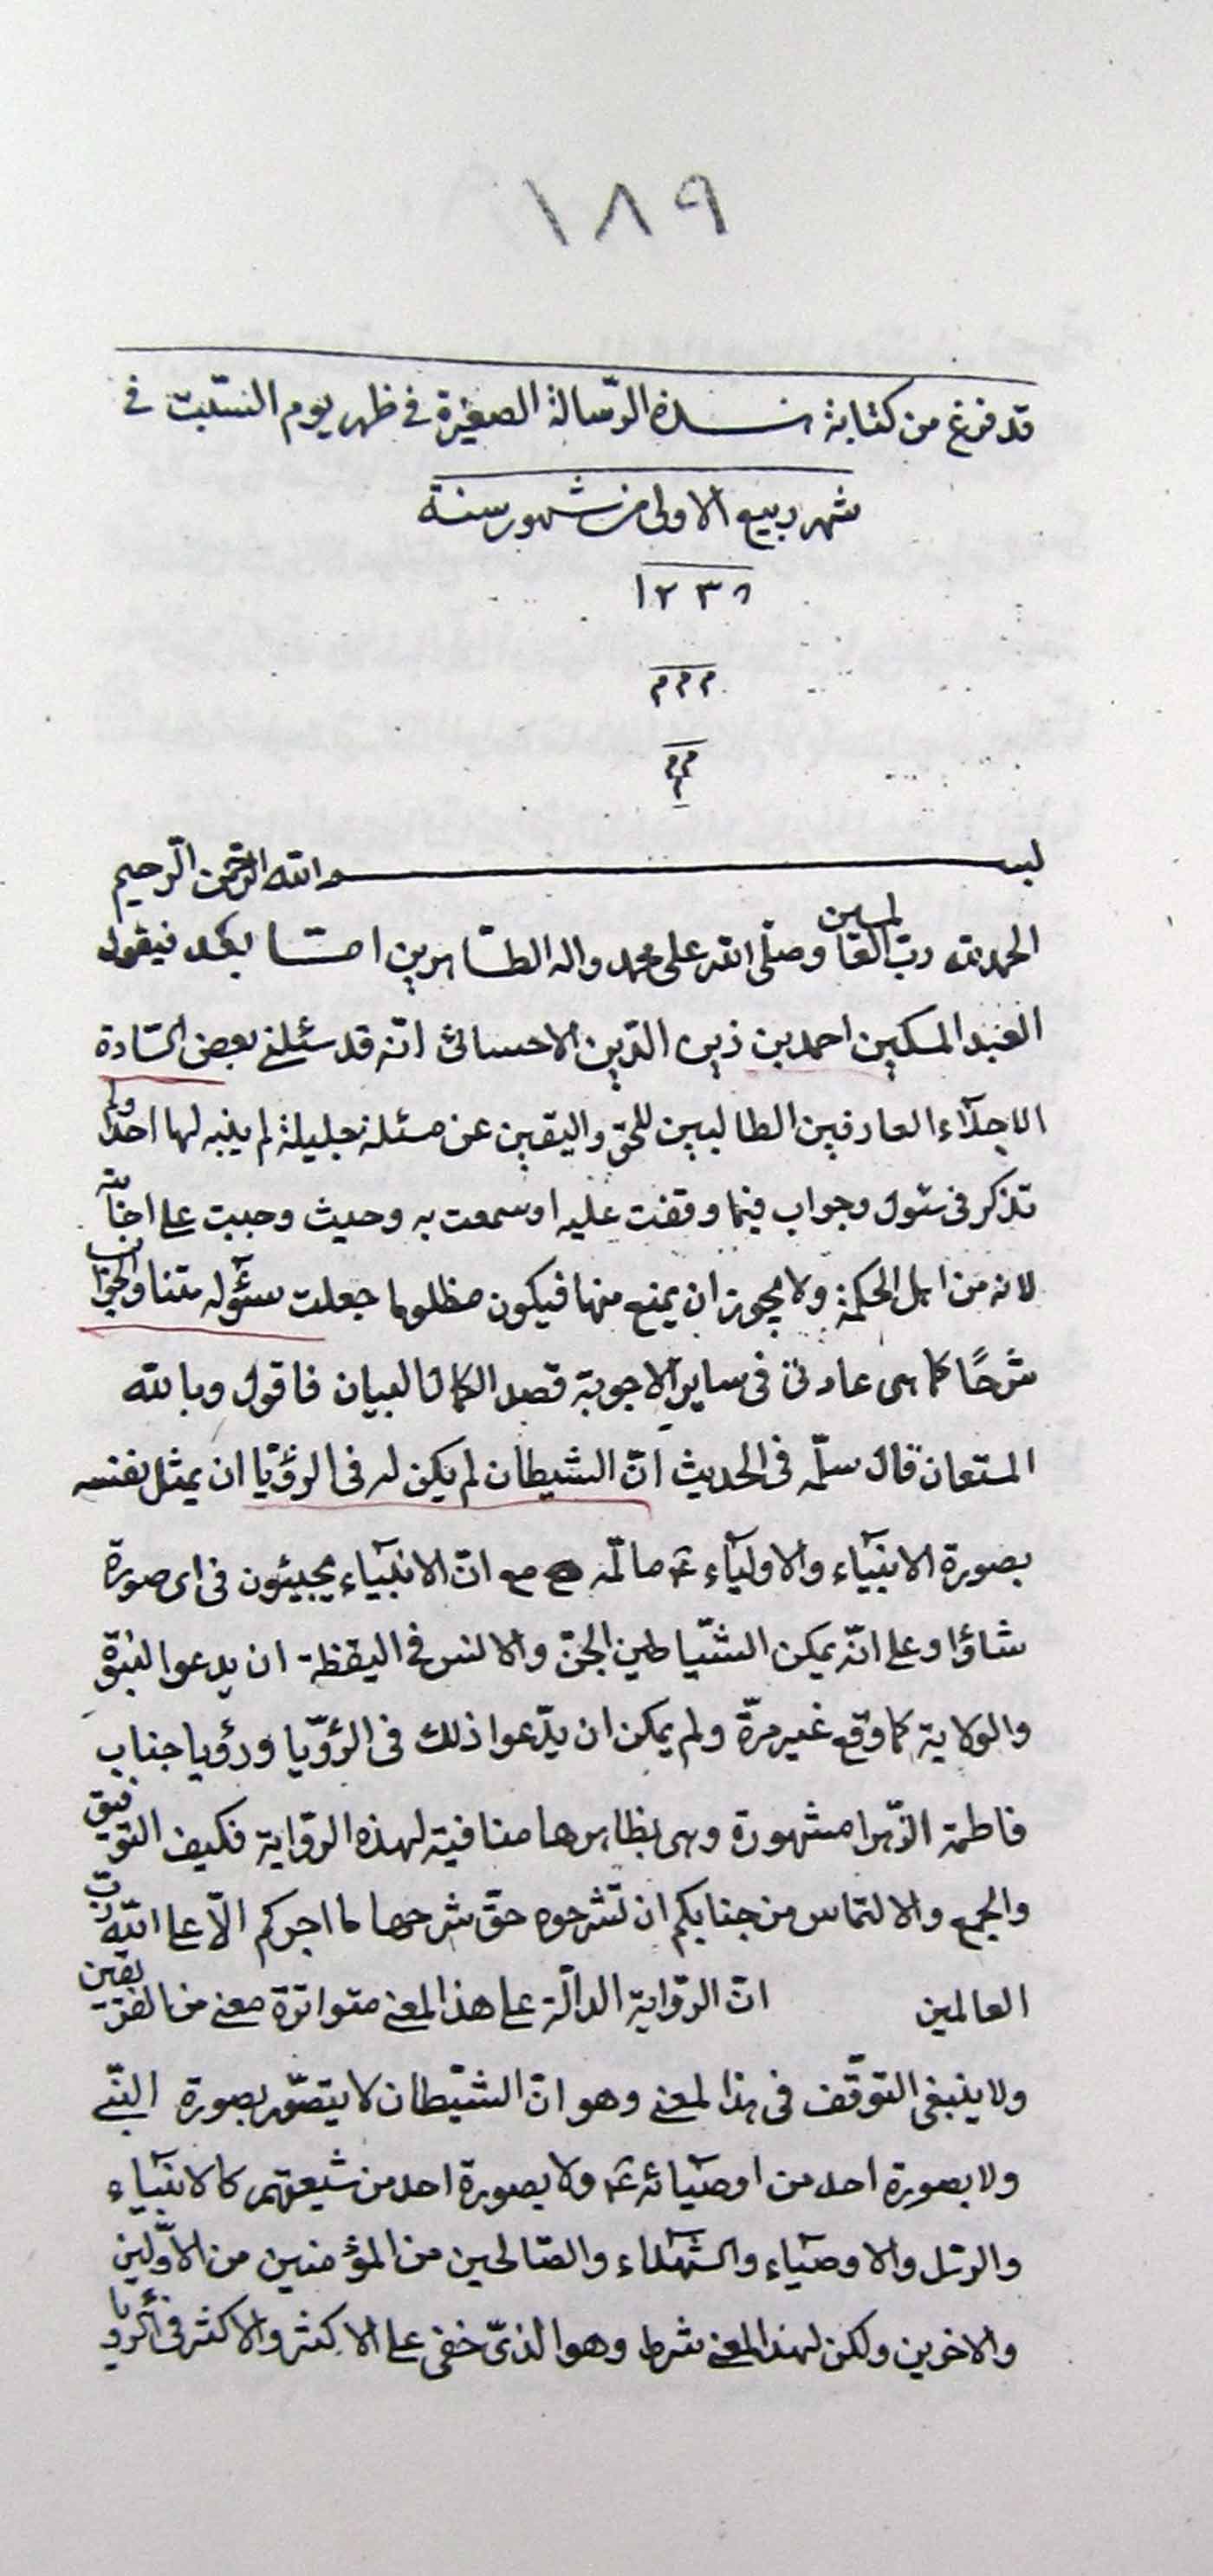 ١٨٩
قد فرغ من كتابة هذه الرّسالة الصغيرة في ظهر يوم السّبت في
شهر ربيع الاولى من شهور سنة
١٢٣٨
م م م
م م م
بسم الله الرّحمن الرّحيم
الحمد لله ربّ العالمين وصلّى الله على محمد واله الطّاهرين امّا بعد فيقول
العبد المسكين احمد بن زين الدّين الاحسائى انّه قد سئلنى بعض السّادة
الاجلّاء العارفين الطالبين للحقّ واليقين عن مسئلة جليلة لم ينبه لها احد ولم
تذكر فى سئول وجواب فيما وقفت عليه او سمعت به وحيث وجبت على اجابته
لانه من اهل الحكمة ولا يجوز ان يمنع منها فيكون مظلوما جعلت سئوله متنا والجواب
شرحًا كما هى عادتى فى ساير الاجوبة قصد الكمال البيان فاقول وبالله
المستعان قال سلّمه فى الحديث انّ الشيطان لم يكن له فى الرؤيا ان يمثل نفسه
بصورة الانبيآء والاوليآء عم مالمّه مع انّ الانبيآء يجيئون فى اى صورة
شاؤا وعلى انّه يمكن الشّياطين الجنّ والانس فى اليقظة ان يدعوا النبوّة
والولاية كما وقع غير مرّة ولم يمكن ان يدّعوا ذلك فى الرؤيا ورؤيا جناب
فاطمة الزّهرا مشهورة وهى بظاهرها منافية لهذه الرّواية فكيف التوفيق
والجمع والالتماس من جنابكم ان تشرحوه حقّ شرحها لما اجركم الّا على الله ربّ
العالمين انّ الرّواية الدالّة على هذا المعنى متواترة معنى من الفريقين
ولا ينبغى التوقّف فى هذا لمعنى وهو انّ الشّيطان لا يتصوّر بصورة النبّى
ولا بصورة احد من اوصيآئه عم ولا بصورة احد من شيعتهم كالانبيآء
والرسل والاوصيآء والشهدآء والصّالحين من المؤمنين من الاوّلين
والاخرين ولكن لهذا المعنى شرط وهو الذىّ خفى على الاكثر والاكثر فى الرؤيا